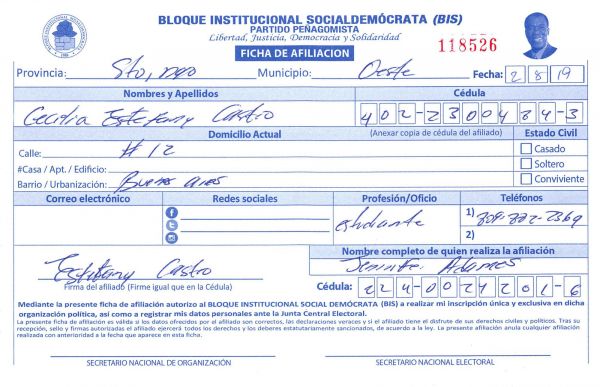 BLOQUE INSTITUCIONAL SOCIALDEMÓCRATA (BIS)
PARTIDO PEÑAGOMISTA
Libertad, Justicia, Democracia y Solidaridad
118526
FICHA DE AFILIACION
Provincia: Sto, ngo Municipio: Oeste Fecha: 2 8 19
Nombres y Apellidos Cédula
Cecilia Estefany Castro 402-2300484-3
Domicilio Actual (Anexar copia de cédula del afiliado) Estado Civil
Calle: # 12 Casado
#Casa / Apt. / Edificio: Soltero
Barrio / Urbanización: Buenos Aires Conviviente
Correo electrónico Redes sociales Profesión/Oficio Teléfonos
estudiante 1) 809-882-2369
2)
Nombre completo de quien realiza la afiliación
Estefany Castro Jennifer Adames
Firma del afiliado (Firme igual que en la Cédula) Cédula: 224-0024201-6
Mediante la presente ficha de afiliación autorizo al BLOQUE INSTITUCIONAL SOCIAL DEMÓCRATA (BIS) a realizar mi inscripción única y exclusiva en dicha
organización política, así como a registrar mis datos personales ante la Junta Central Electoral.
La presente ficha de afiliación es válida si los datos ofrecidos por el afiliado son correctos, las declaraciones veraces y si el afiliado tiene el disfrute de sus derechos civiles y políticos. Tras su
recepción, sello y firmas autorizadas el afiliado ejercerá todos los derechos y los deberes estatutariamente sancionados, de acuerdo a la ley. La presente afiliación anula cualquier afiliación
realizada con anterioridad a la fecha que aparece en esta ficha.
SECRETARIO NACIONAL DE ORGANIZACIÓN SECRETARIO NACIONAL ELECTORAL